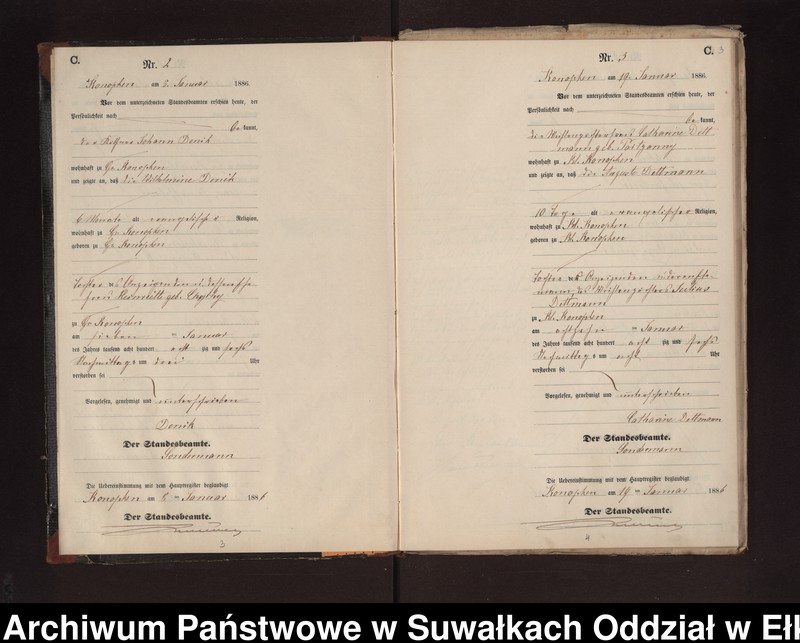 C.
Nr. 2
Konophen am 8. Januar 1886.
Vor dem unterzeichneten Standesbeamten erschien heute, der
Persönlichkeit nach
be kannt,
der Johann Donik
wohnhaft zu Gr. Konophen
und zeigte an, daß die Wilhelmine Donik
6 Monate alt evangelischer Religion,
wohnhaft zu Gr. Konophen
geboren zu Gr. Konophen
Tochter des Anzeigenden
geb.
zu Gr. Konophen
am sieben ten Januar
des Jahres tausend acht hundert acht zig und sechs
Nachmittags um drei Uhr
verstorben sei
Vorgelesen, genehmigt und unterschrieben
Donik
Der Standesbeamte.
Sondermann
Die Uebereinstimmung mit dem Hauptregister beglaubigt.
Konophen am 8 ten Januar 1886
Der Standesbeamte.
3
C. 3
Nr. 3
Konophen am 19. Januar 1886.
Vor dem unterzeichneten Standesbeamten erschien heute, der
Persönlichkeit nach
be kannt,
die Catharine Dott
mann geb.
wohnhaft zu Kl. Konophen
und zeigte an, daß die Auguste Dottmann
10 Tage alt evangelischer Religion,
wohnhaft zu Kl. Konophen
geboren zu Kl. Konophen
Tochter der Anzeigenden und deren Ehe
mann des
Dittmann
zu Kl. Konophen
am achtzehn ten Januar
des Jahres tausend acht hundert acht zig und sechs
Nachmittags um acht Uhr
verstorben sei
Vorgelesen, genehmigt und unterschrieben
Catharine Dottmann
Der Standesbeamte.
Sondermann
Die Uebereinstimmung mit dem Hauptregister beglaubigt.
Konophen am 19 ten Januar 1886
Der Standesbeamte.
4
Archiwum Państwowe w Suwałkach Oddział w Eł